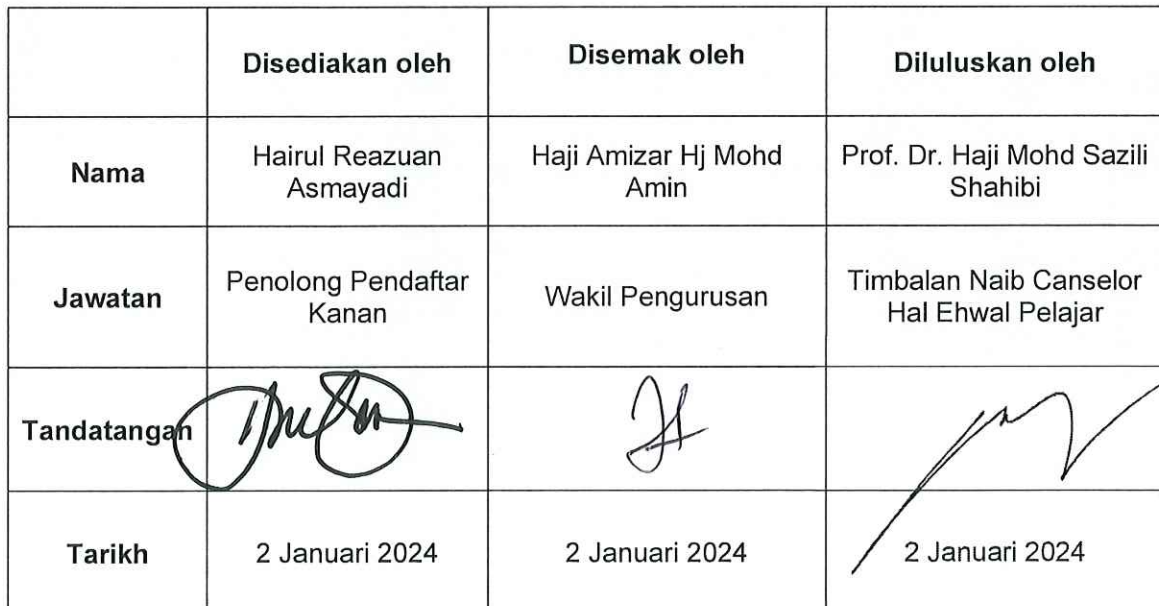 Disediakan oleh
Disemak oleh
Diluluskan oleh
Nama
Hairul Reazuan
Asmayadi
Haji Amizar Hj Mohd
Amin
Prof. Dr. Haji Mohd Sazili
Shahibi
Jawatan
Penolong Pendaftar
Kanan
Wakil Pengurusan
Timbalan Naib Canselor
Hal Ehwal Pelajar
Tandatangan
Tarikh
2 Januari 2024
2 Januari 2024
2 Januari 2024